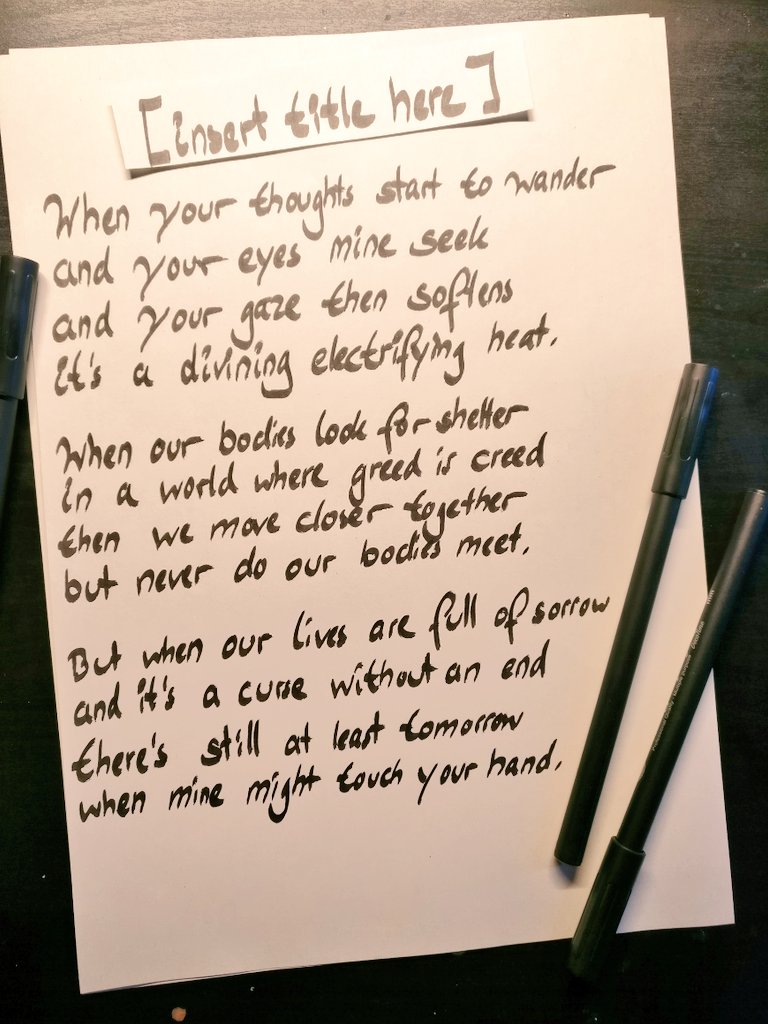 [insert title here]
When your thoughts start to wander
and your eyes mine seek
and your gaze then softens
it's a divining electrifying heat.
When our bodies look for shelter
in a world where greed is creed
then we move closer together
but never do our bodies meet.
But when our lives are full of sorrow
and it's a curse without an end
there's still at least tomorrow
when mine might touch your hand.